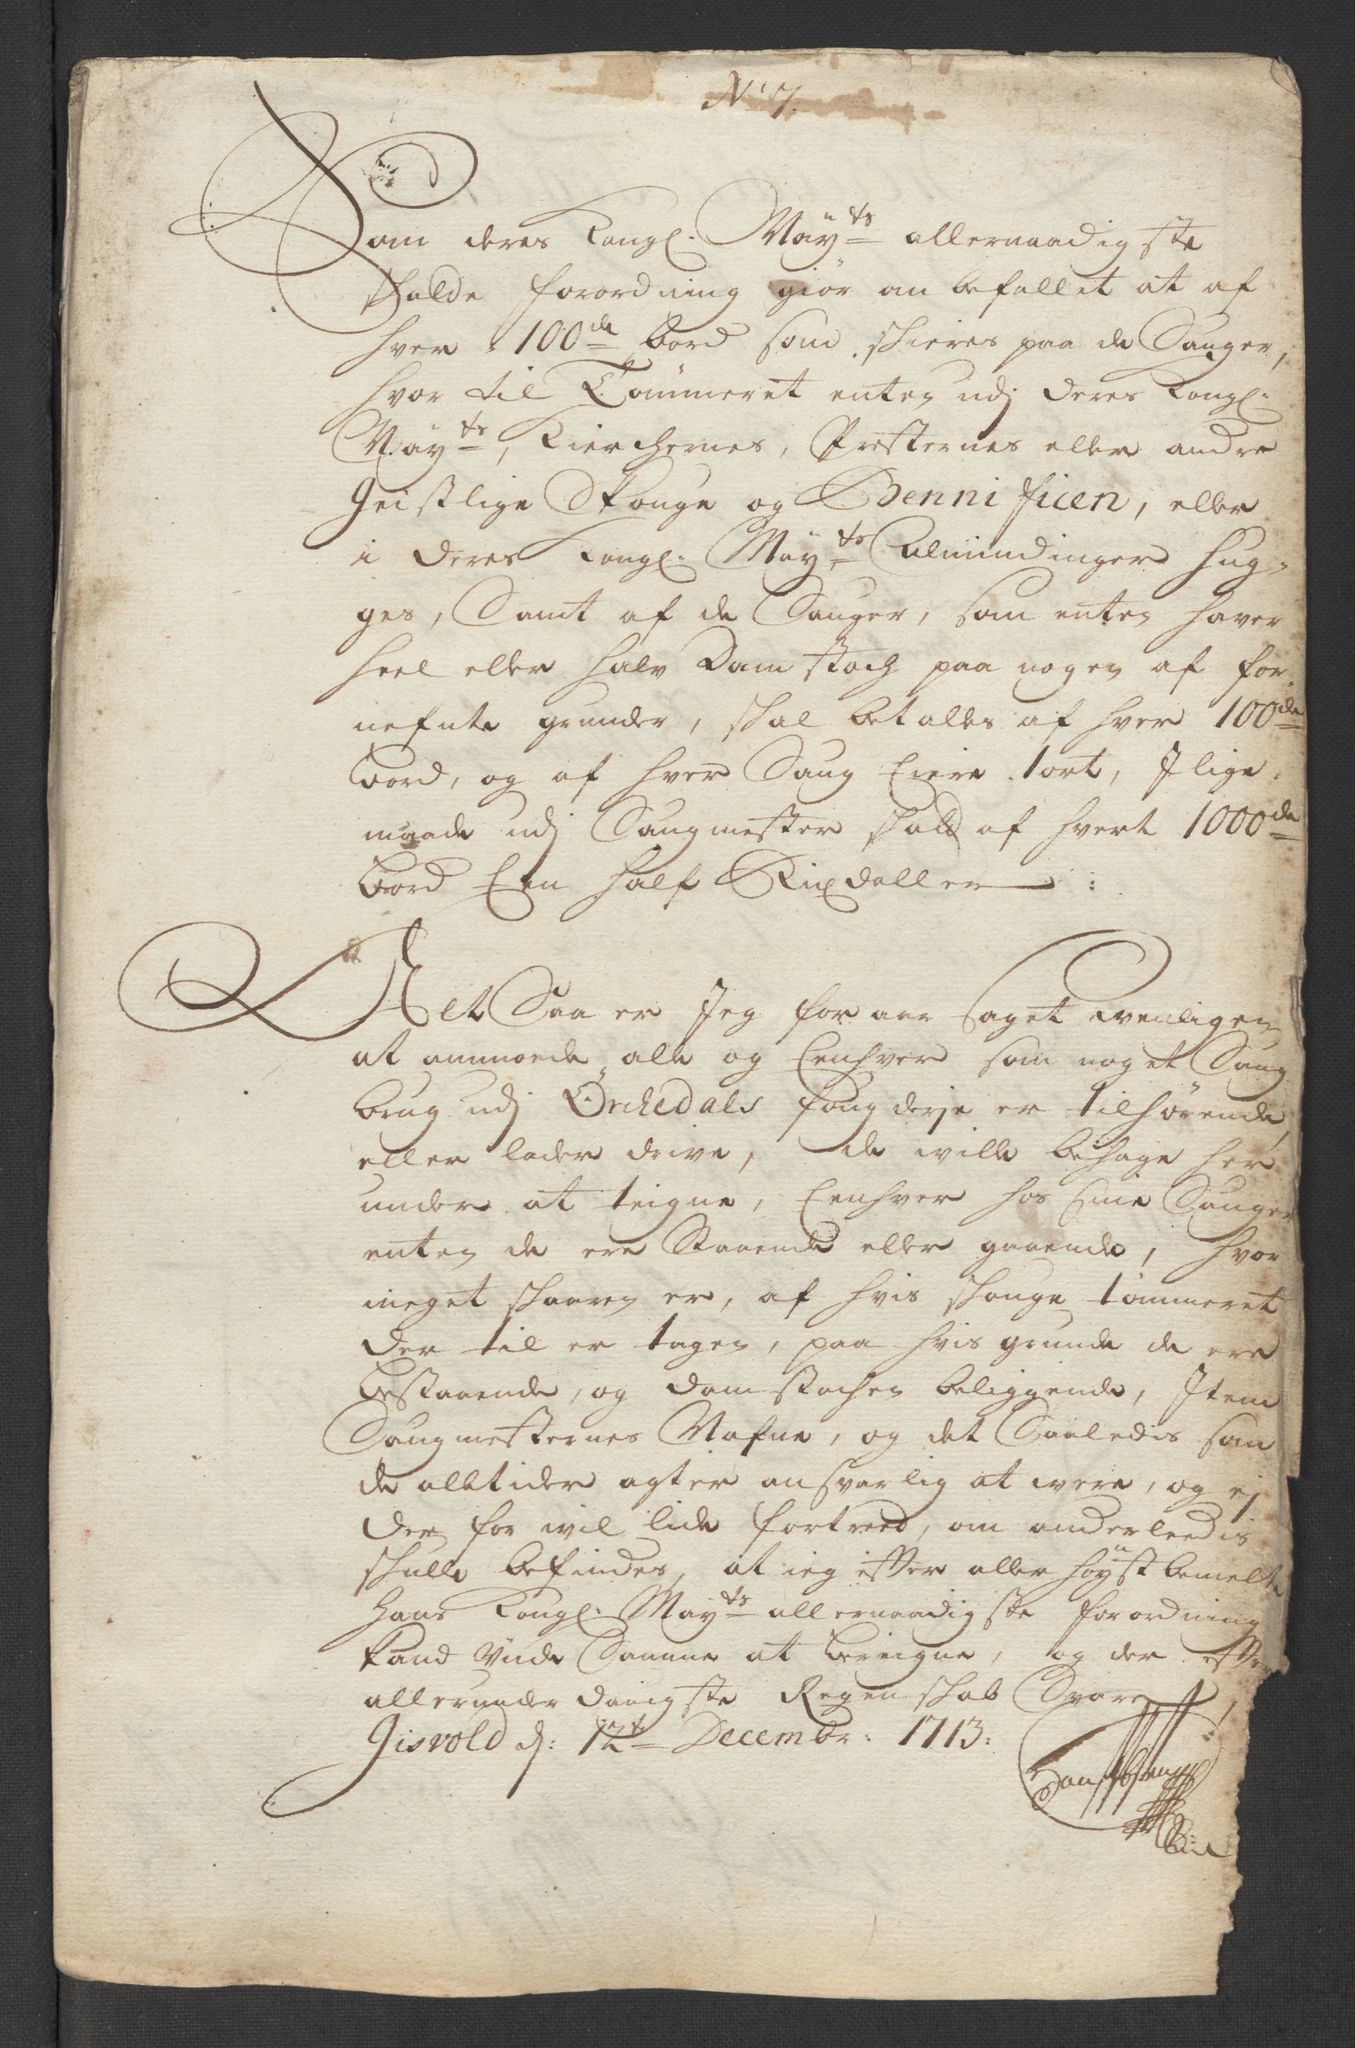 No 7.
Som deres Kongl: Mäytts allernaadigste
skatte forordning giör anbefallet at af
hver 100de bord som skieres paa de Sauger,
hvor til Tömmeret enten udj deres Kongl:
Mäytts, Kierchernes, Presternes eller andre
Geistlige Skouge og Bennificen, eller
i deres Kongl: Mäytts Almindinger hug-
ges, Samt af de Sauger, som enten haver
heel eller halv Damstoch paa nogen af for-
nefnte grunder, skal betales af hver 100de
bord, og af hver Saug Eiere 1 ort, Jlige
maade udj Saugmester skatt af hvert 1000de
bord Een half Rixdaller :
Alt Saa er Jeg foraarsaget wenligen
at anmoede alle og Eenhver som noget Saug
brug udj Örchedals fougderje er tilhörende
eller lader drive, de wille behage her
under at teigne, Eenhver hos sine Sauger
enten de ere Staaende eller gaaende, hvor
meget skaaren er, af hvis skouge tömmeret
der til er tagen, paa hvis grunde de ere
bestaaende, og damstochen beliggende, Jtem
Saugmesternes Nafne, og det Saaledis som
de alltider agter ansvarlig at were, og ej
der for wil lide fortred, om anderleedis
skulle befindes, at ieg efter aller höystbemelte
Hans Kongl: Mäytts allernaadigste forordning
kand vide Samme at bereigne, og der efter
allerunderdanigste Regenskab Svare,
Gisvold d: 12te Decembr: 1713: